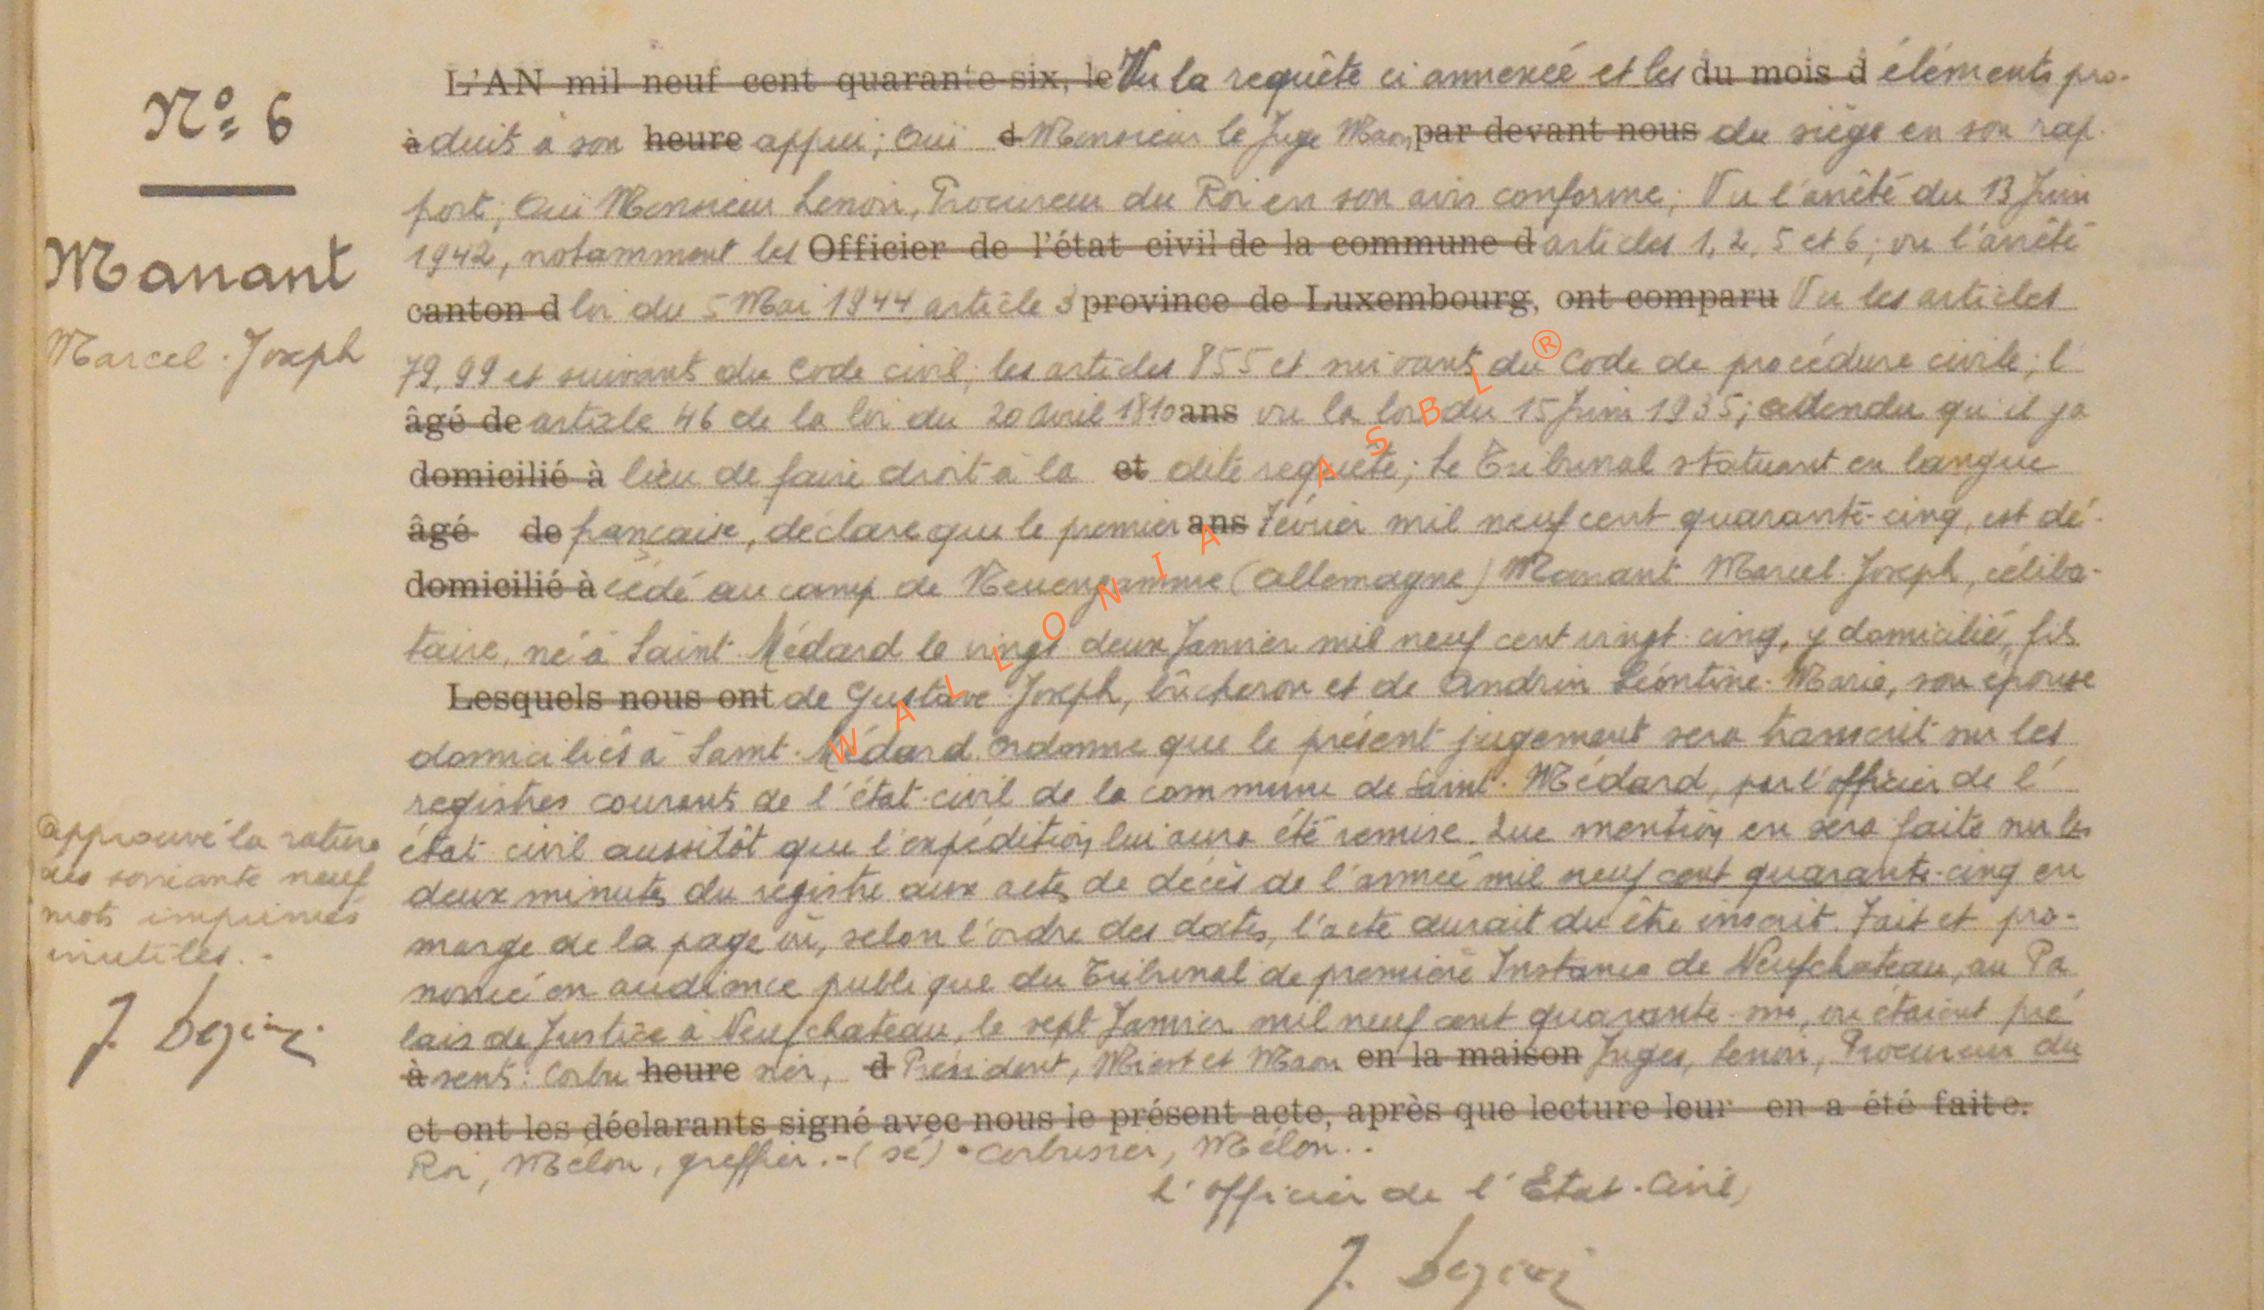 Nº 6
Manant
Marcel-Joseph
L'AN mil neuf cent quarante-six, le Vu la requête ci annexée et les du mois d éléments pro-
à duits à son heure appui; Ouï d Monsieur le Juge Maon par devant nous du siège en son rap-
port; Ouï Monsieur Lenoir, Procureur du Roi en son avis conforme; Vu l'arrêté du 13 Juin
1942, notamment les Officier de l'état civil de la commune d articles 1, 2, 5 et 6; vu l'arrêté
canton d loi du 5 Mai 1944 article 3 province de Luxembourg, ont comparu Vu les articles
79, 99 et suivants du Code civil; les articles 855 et suivants du Code de procédure civile; l'
âgé de article 46 de la loi du 20 Avril 1810 ans vu la loi du 15 Juin 1935; attendu qu'il y a
domicilié à lieu de faire droit à la et dite requête; Le Tribunal statuant en langue
âgé de française, déclare que le premier ans Février mil neuf cent quarante-cinq, est dé-
domicilié à cédé au camp de Neuengamme (Allemagne) Manant Marcel-Joseph, céliba-
taire, né à Saint-Médard le vingt-deux Janvier mil neuf cent vingt-cinq, y domicilié, fils
Lesquels nous ont de Gustave-Joseph, bûcheron et de Andrin Léontine-Marie, son épouse
domiciliés à Saint-Médard. Ordonne que le présent jugement sera transcrit sur les
registres courants de l'état-civil de la commune de Saint-Médard, par l'officier de l'
état-civil aussitôt que l'expédition lui aura été remise. Que mention en sera faite sur les
deux minutes du registre aux actes de décès de l'année mil neuf cent quarante-cinq en
marge de la page où, selon l'ordre des dates, l'acte aurait du être inscrit. Fait et pro-
noncé en audience publique du Tribunal de première Instance de Neufchateau, au Pa
lais de Justice à Neufchateau, le sept Janvier mil neuf cent quarante-six, où étaient pré
à sents: Corbu heure sier, d Président, et Maon en la maison Juges, Lenoir, Procureur du
et ont les déclarants signé avec nous le présent acte, après que lecture leur en a été faite.
Roi, Mélon, greffier.-(sé) Corbusier, Mélon..
L'officier de l'Etat-Civil,
Approuvé la rature
des soixante neuf
mots imprimés
inutiles.-
WALLONIA ASBL ®